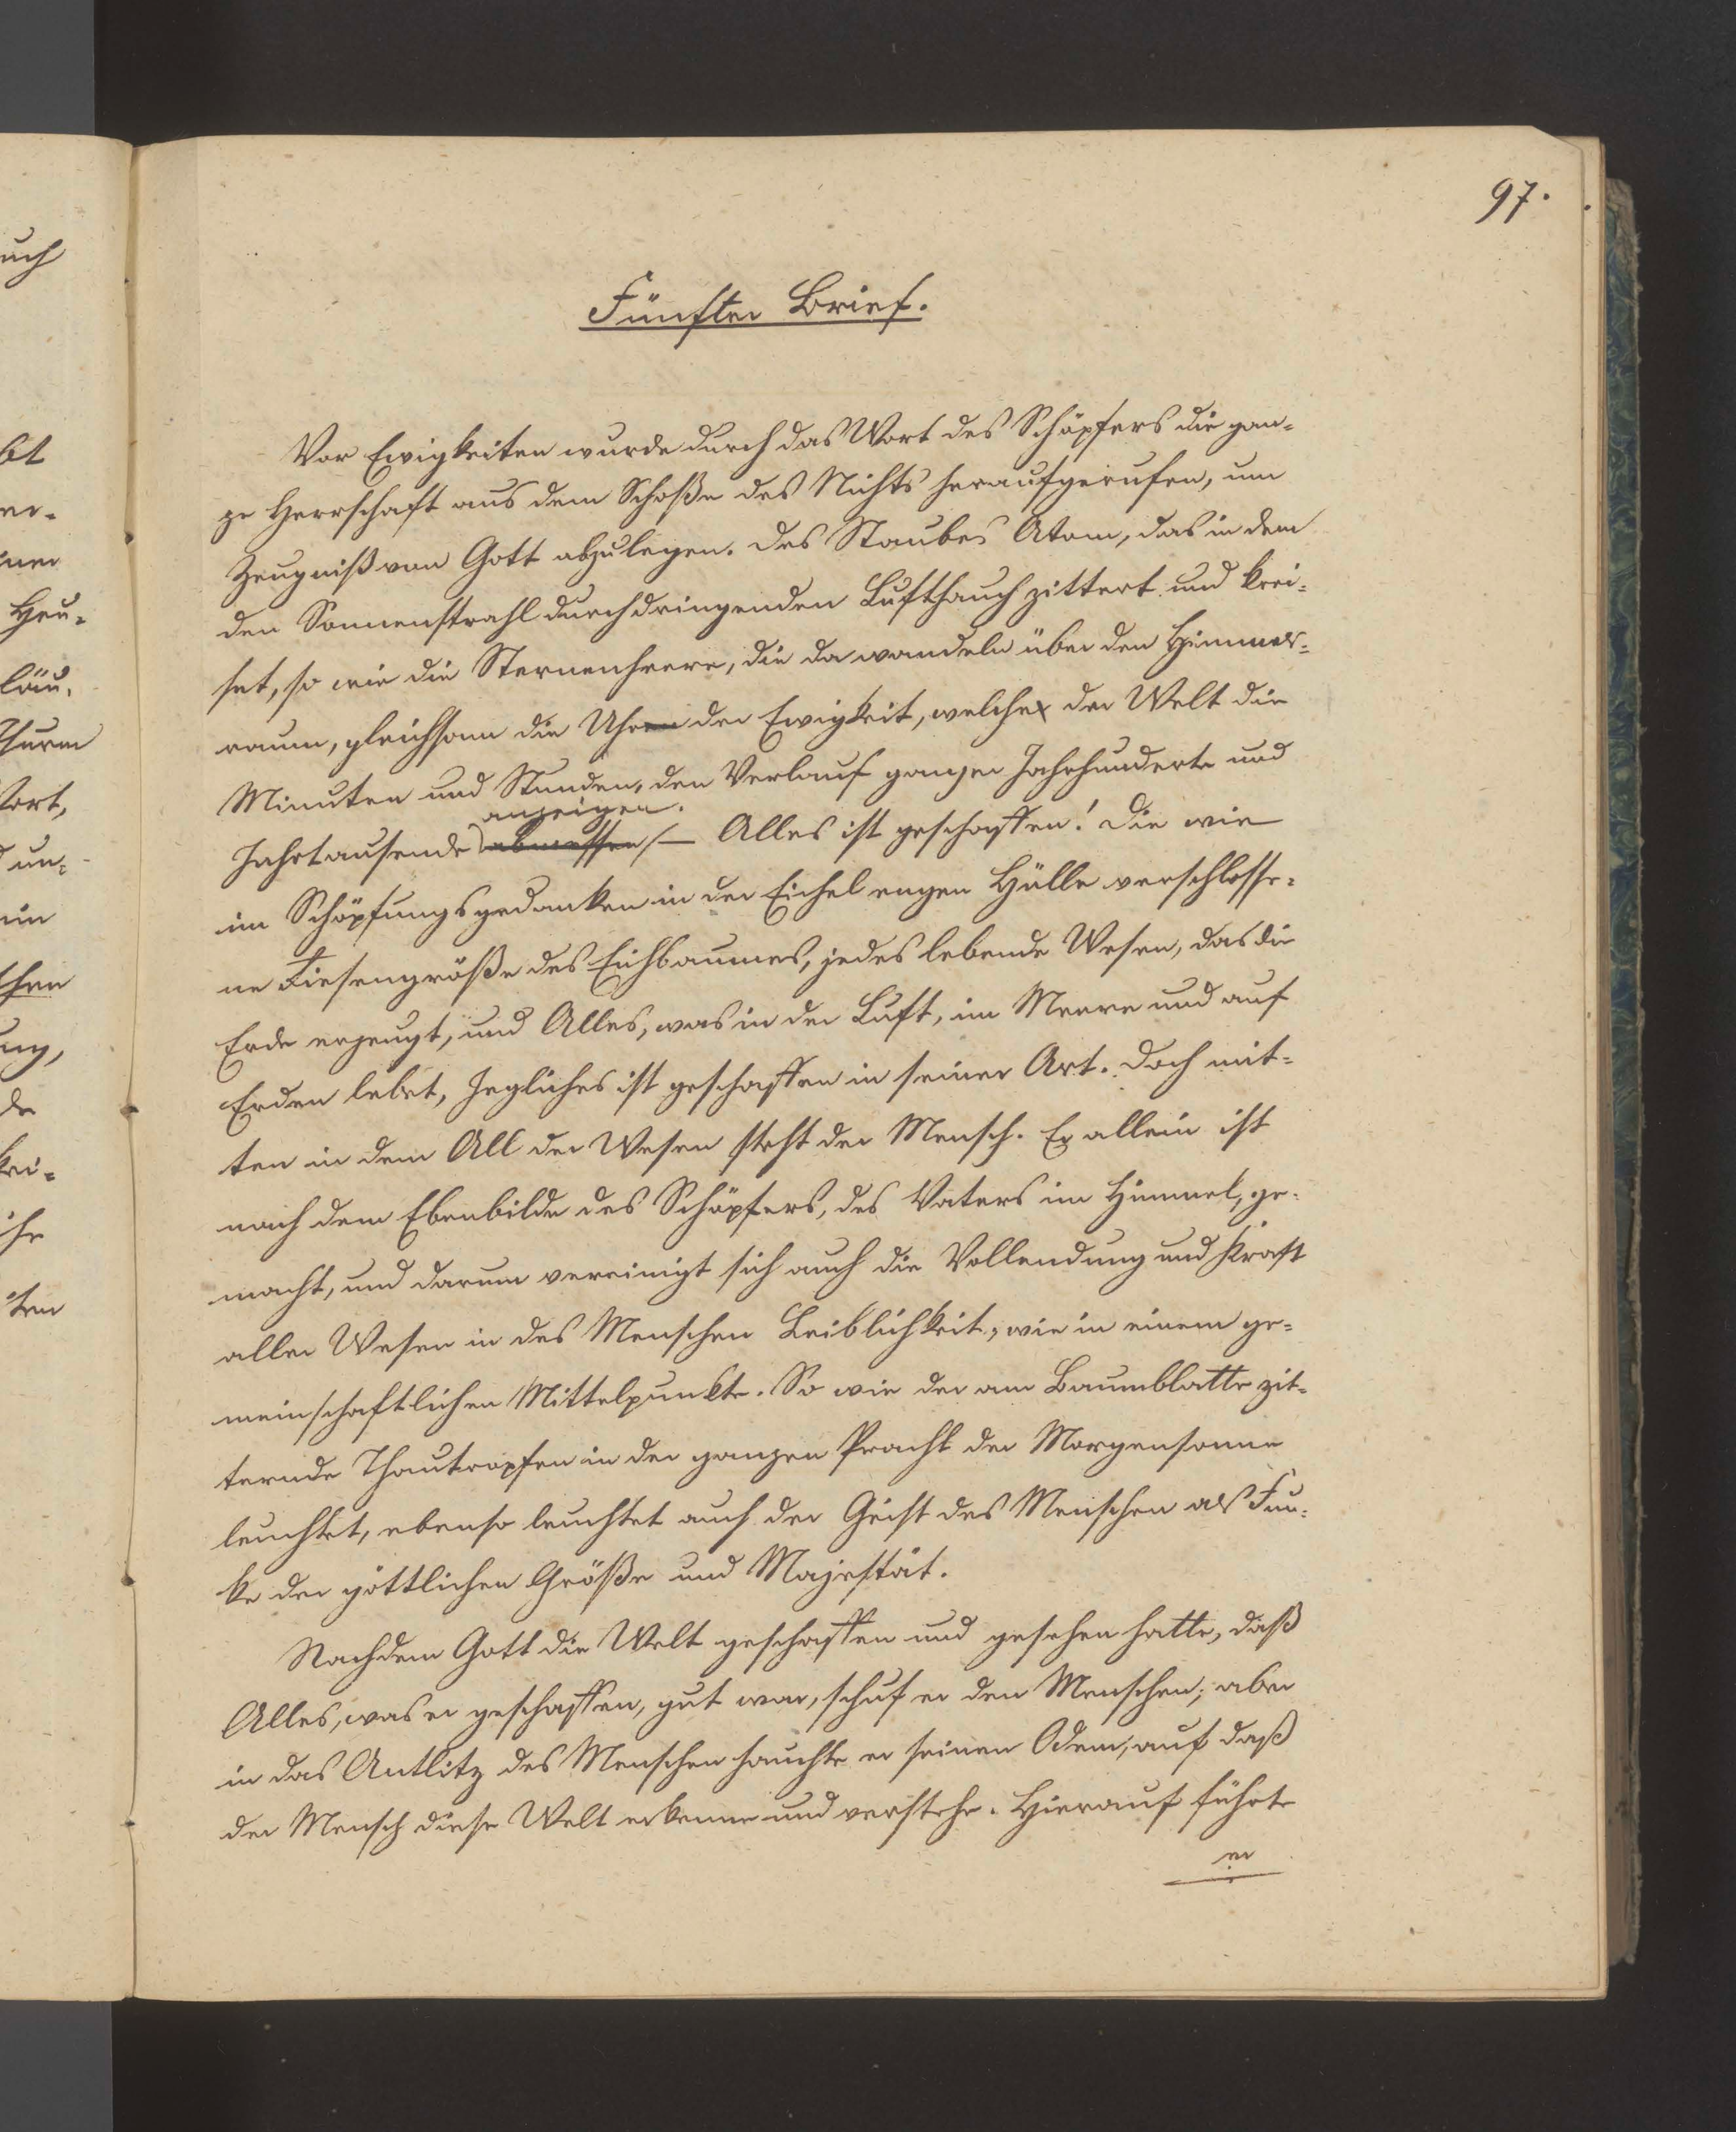 97.
Fünfter Brief.
Vor Ewigkeiten wurde durch das Wort des Schöpfers die gan-
ze Herrschaft aus dem Schoße des Nichts heraufgerufen, um
Zeugniß von Gott abzulegen. Des Staubes Atom, das in dem
den Sonnenstrahl durchdringenden Lufthauch zittert und krei-
set, so wie die Sternenheere, die da wandeln über den Himmels-
raum, gleichsam die Uhren der Ewigkeit, welche der Welt die
Minuten und Stunden, den Verlauf ganzer Jahrhunderte und
anzeigen.
Jahrtausende abmessen – Alles ist geschaffen! Die wie
im Schöpfungsgedanken in der Eichel engen Hülle verschlosse-
ne Riesengröße des Eichbaumes, jedes lebende Wesen, das die
Erde erzeugt, und Alles, was in der Luft, im Meere und auf
Erden lebet, Jegliches ist geschaffen in seiner Art. Doch mit-
ten in dem All der Wesen steht der Mensch. Er allein ist
nach dem Ebenbilde des Schöpfers, des Vaters im Himmel, ge-
macht, und darum vereinigt sich auch die Vollendung und Kraft
aller Wesen in des Menschen Leiblichkeit, wie in einem ge-
meinschaftlichen Mittelpunkte. So wie der am Baumblatte zit-
ternde Thautropfen in der ganzen Pracht der Morgensonne
leuchtet, ebenso leuchtet auch der Geist des Menschen als Fun-
ke der göttlichen Größe und Majestät.
Nachdem Gott die Welt geschaffen und gesehen hatte, daß
Alles, was er geschaffen, gut war, schuf er den Menschen; aber
in das Antlitz des Menschen hauchte er seinen Odem, auf daß
der Mensch diese Welt erkenne und verstehe. Hierauf führte
er